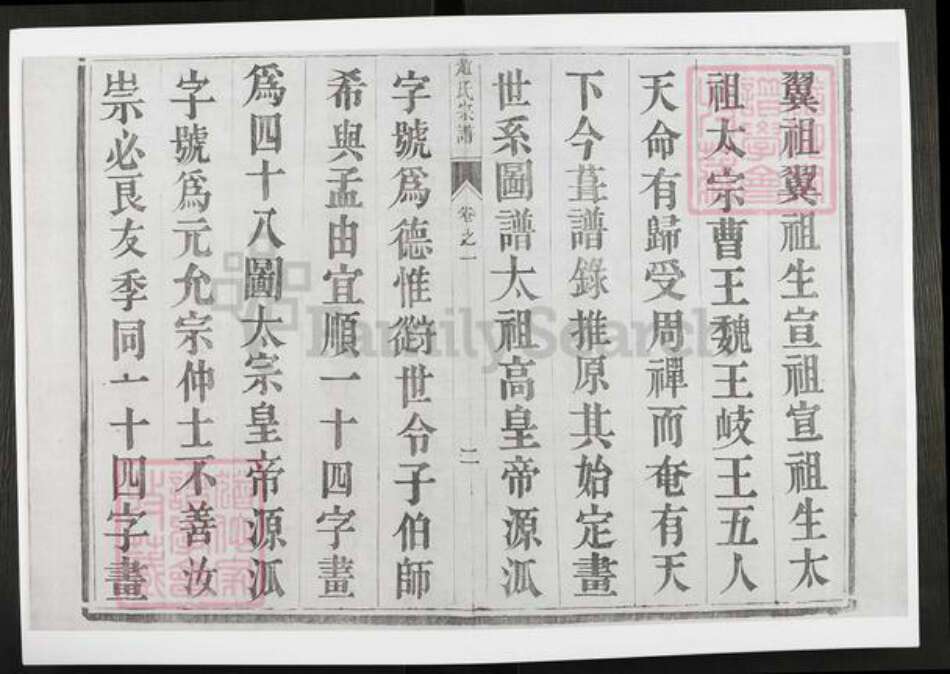 翼祖翼祖生宣祖宣祖生太
祖太宗曹王魏王岐王五人
天命有歸受周禪而奄有天
下今葺譜錄推原其始定畫
世系圖譜太祖高皇帝源派
趙氏宗譜 卷之一 二
字號爲德惟從世令子伯師
希與孟由宜順一十四字畫
爲四十八圖太宗皇帝源派
字號爲元允宗仲士不善汝
崇必良友季同一十四字畫
FamilySearch